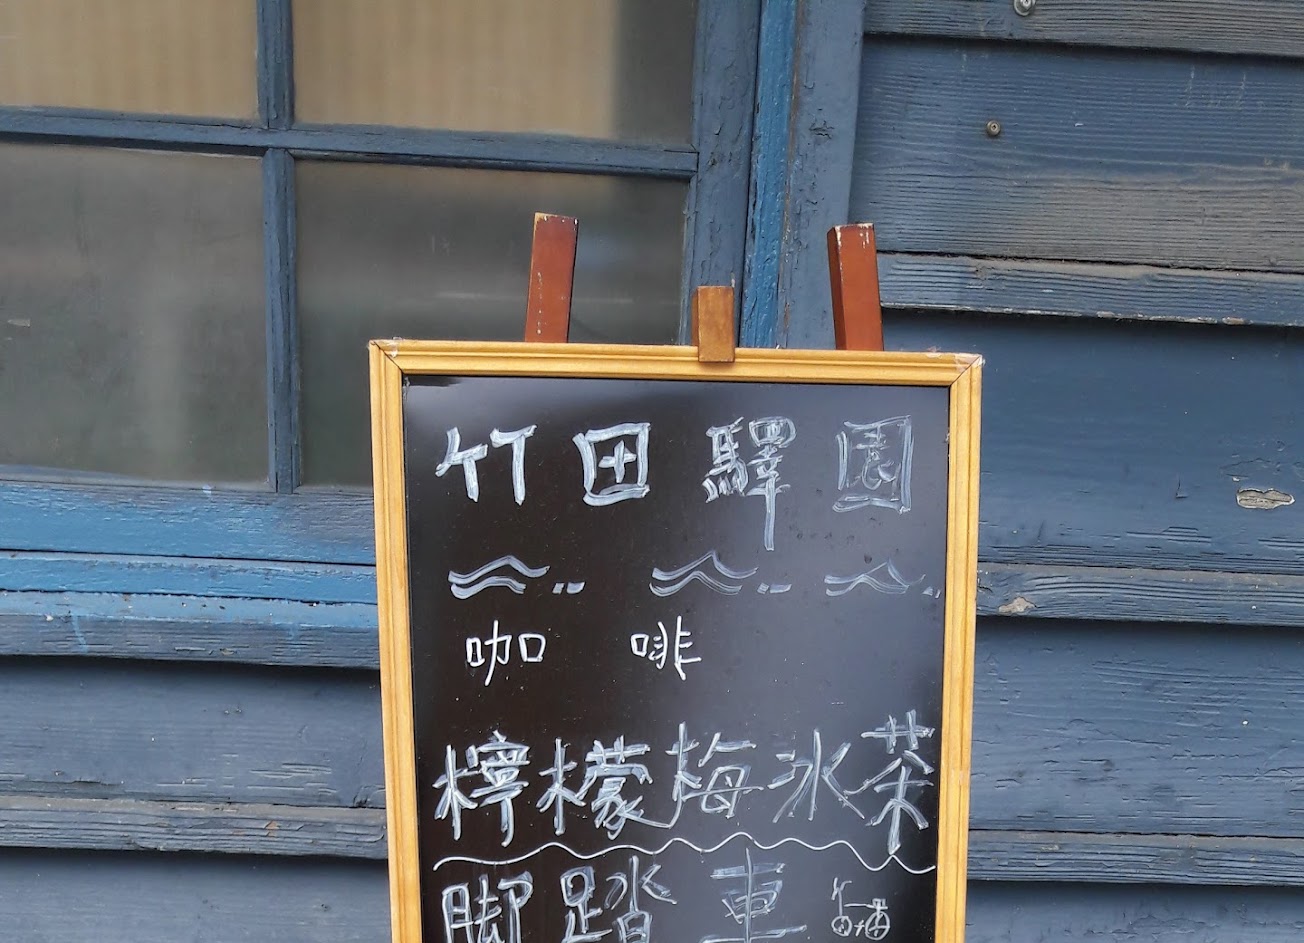 竹田驛園
咖啡
檸檬梅冰茶
脚踏車